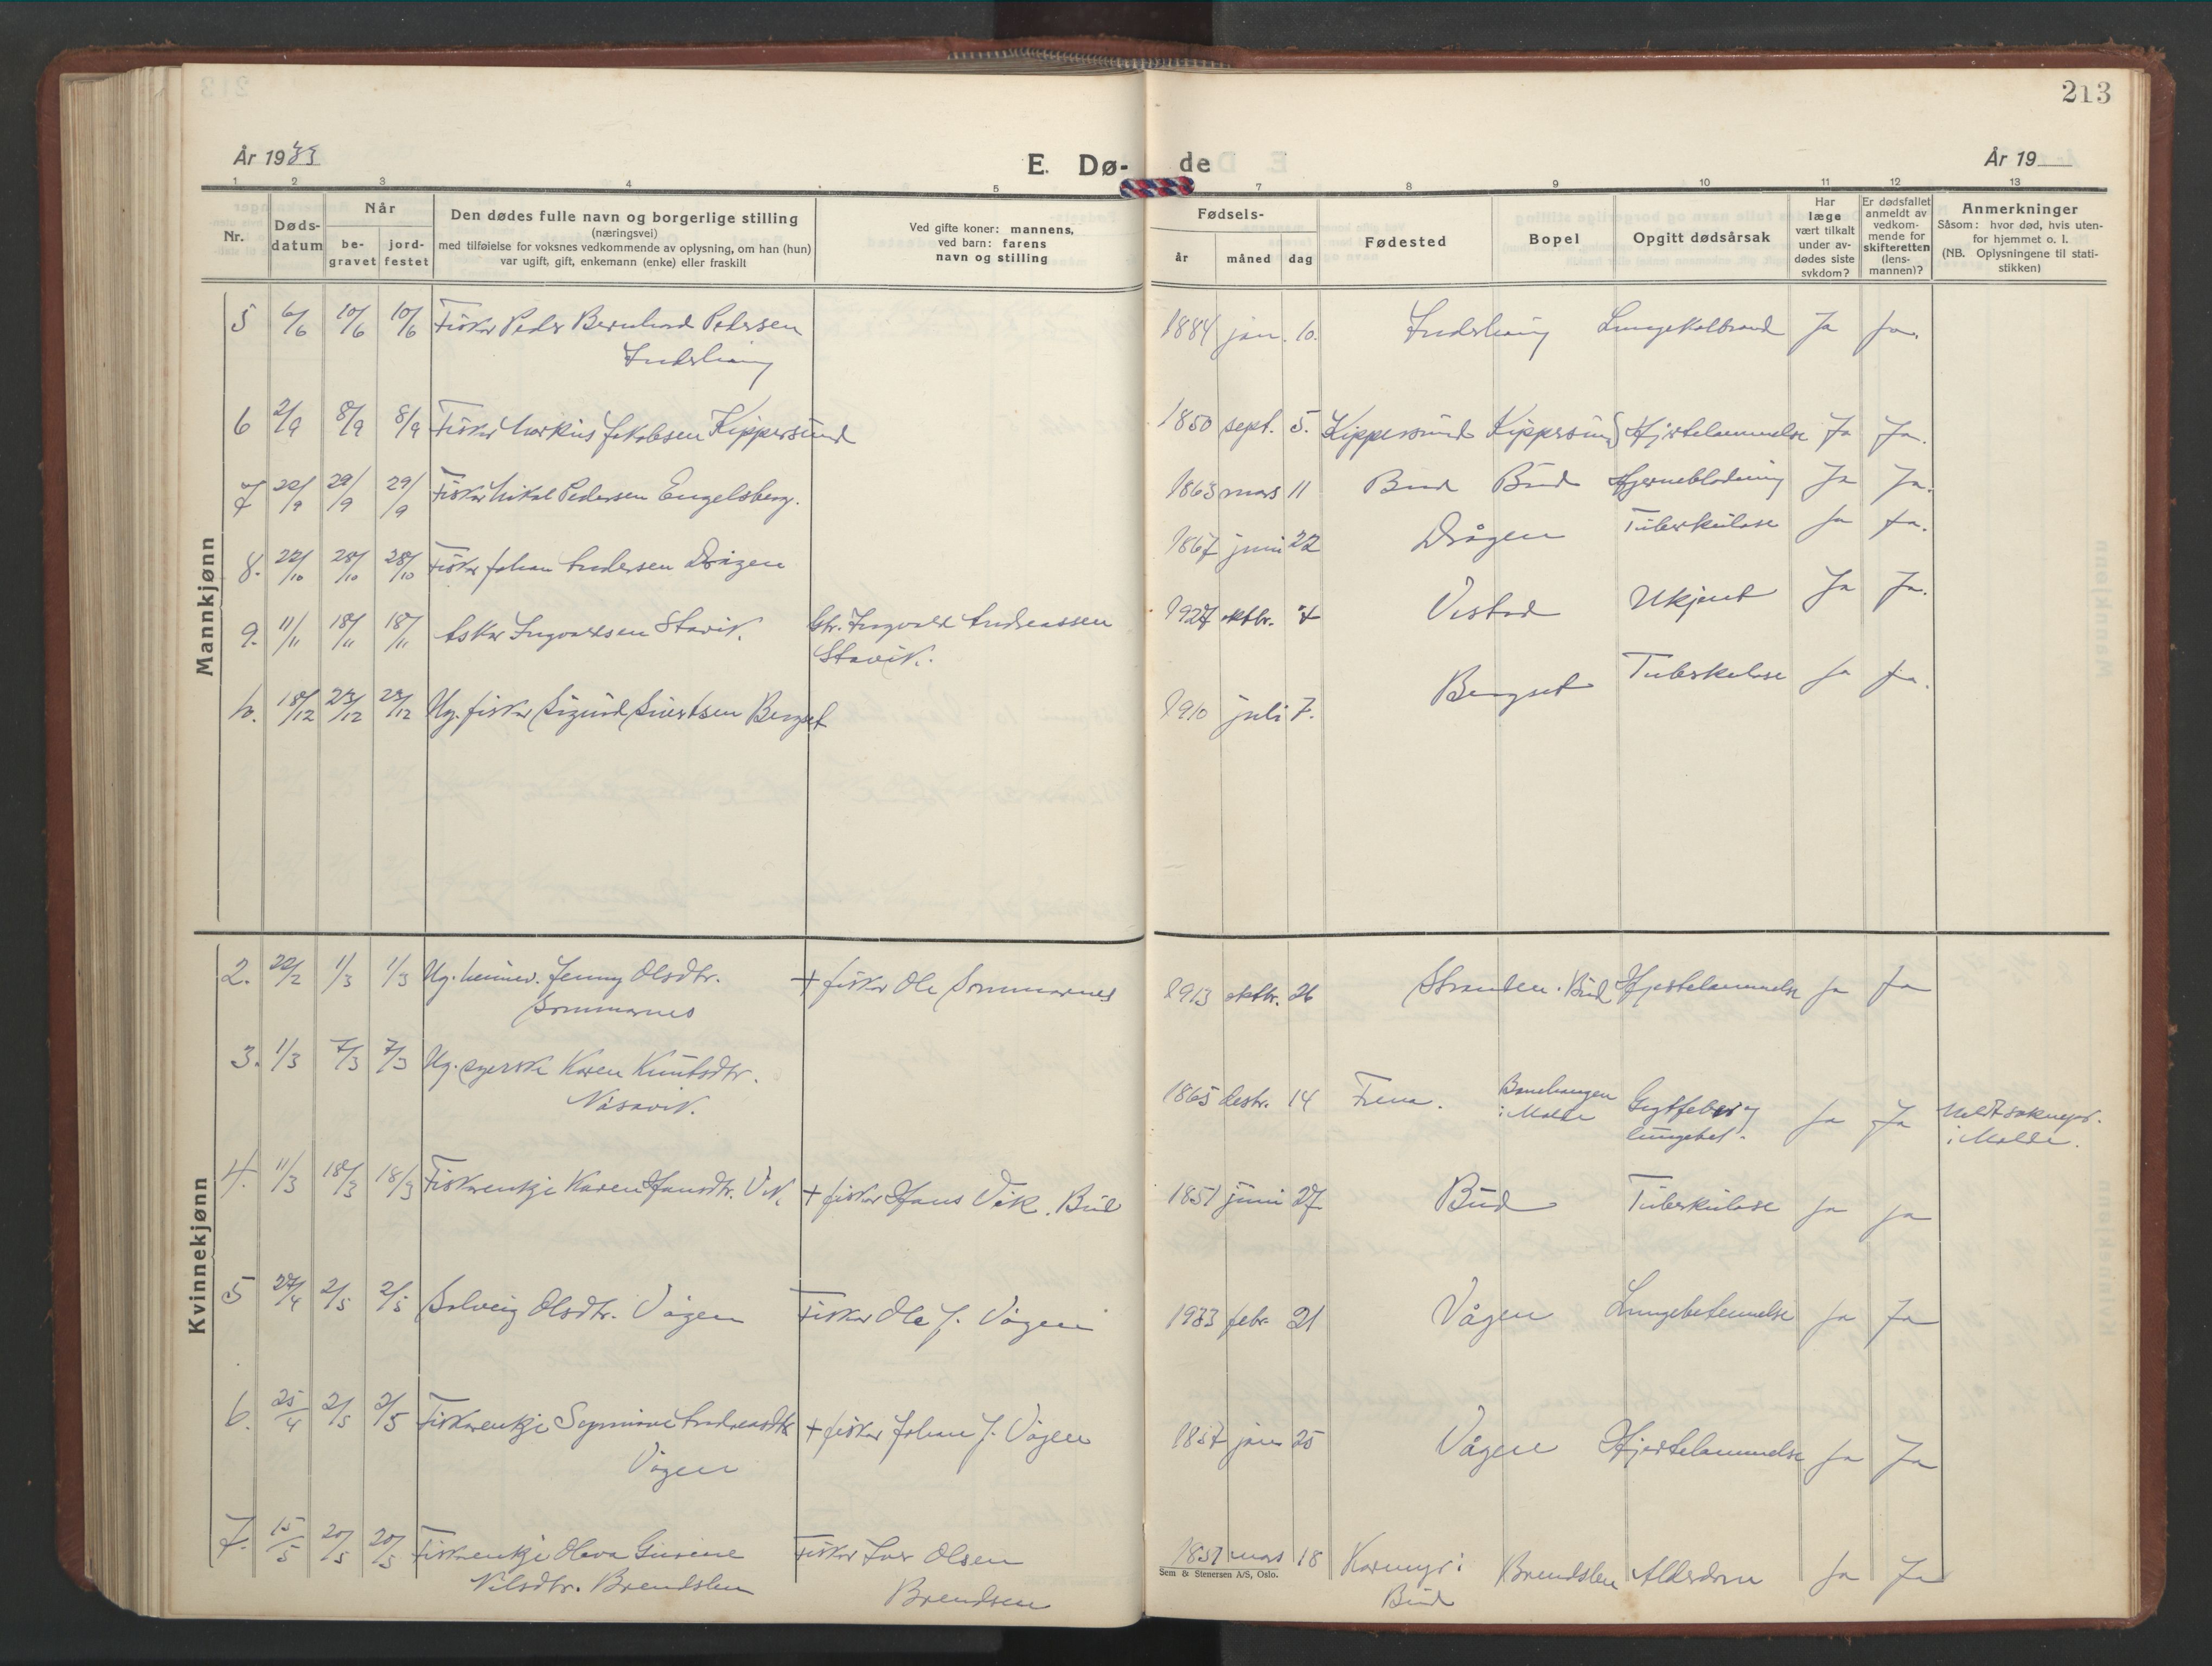 213
År 1933
E. Dø- de
År 19
1 2 3 4 5 7 8 9 10 11 12 13
Nr.
Døds-
datum
Når
be-
gravet
jord-
festet
Den dødes fulle navn og borgerlige stilling
(næringsvei)
med tilføielse for voksnes vedkommende av oplysning, om han (hun)
var ugift, gift, enkemann (enke) eller fraskilt
Ved gifte koner: mannens,
ved barn: farens
navn og stilling
Fødsels-
år måned dag
Fødested
Bopel
Opgitt dødsårsak
Har
læge
vært tilkalt
under av-
dødes siste
sykdom?
Er dødsfallet
anmeldt av
vedkom-
mende for
skifteretten
(lens-
mannen)?
Anmerkninger
Såsom: hvor død, hvis uten-
for hjemmet o. l.
(NB. Oplysningene til stati-
stikken)
Mannkjønn
5 6/6 10/6 10/6 Fisker Peder Bernhard Pedersen 1884 jan. 10. Lungekolbrand Ja Ja.
6 2/9 8/9 8/9 Fisker Markus Jakobsen Kippersund 1850 sept. 5. Kippersund Kippersund Hjertelammelse Ja Ja.
7 22/9 29/9 29/9 Fisker Mikal Pedersen Engelsberg. 1863 mars 11 Bud Bud Hjerneblødning Ja Ja.
8. 22/10 28/10 28/10 Fisker Johan Andersen Drågen 1867 juni 22 Drågen Tuberkulose Ja Ja.
9. 11/11 18/11 18/11 Askar Ingvaldsen Stavik. Gbr. Ingvald Andreassen 1927 oktbr. 4 Vestad Ukjent Ja Ja.
Stavik.
10. 18/12 23/12 23/12 Ug. fisker Sigurd Sivertsen Bergset 1910 juli 7. Bergset Tuberkulose Ja Ja.
Kvinnekjønn
2. 22/2 1/3 1/3 Ug. Jenny Olsdtr. + fisker Ole Sommarnes 1913 oktbr. 26 Stranden. Bud Hjertelammelse Ja Ja
Sommarnes
3. 1/3 7/3 7/3 Ug. syerske Karen Knutsdtr. 1865 desbr. 14 Fræna. i Molde Giktfeber og Ja Ja Meldt soknepr.
Nåsavik. lungebet. i Molde.
4. 11/3 18/3 18/3 Fiskerenkje Karen Hansdtr. Vik. + fisker Hans Vik. Bud 1851 juni 27 Bud Tuberkulose Ja Ja
5 27/4 2/5 2/5 Solveig Olsdtr. Vågen Fisker Ole J. Vågen 1933 febr. 21 Vågen Lungebetennelse Ja Ja
6. 25/4 2/5 2/5 Fiskerenkje Andreasdtr. + fisker Johan J. Vågen 1857 jan 25 Vågen Hjertelammelse Ja Ja
Vågen
7. 15/5 20/5 20/5 Fiskerenkje Olava Gurine Fisker Iver Olsen 1851 mars 18 Karmyr i Brendslen Alderdom Ja Ja
Nilsdtr. Brendslen Brendsen Bud
Sem & Stenersen A/S, Oslo.